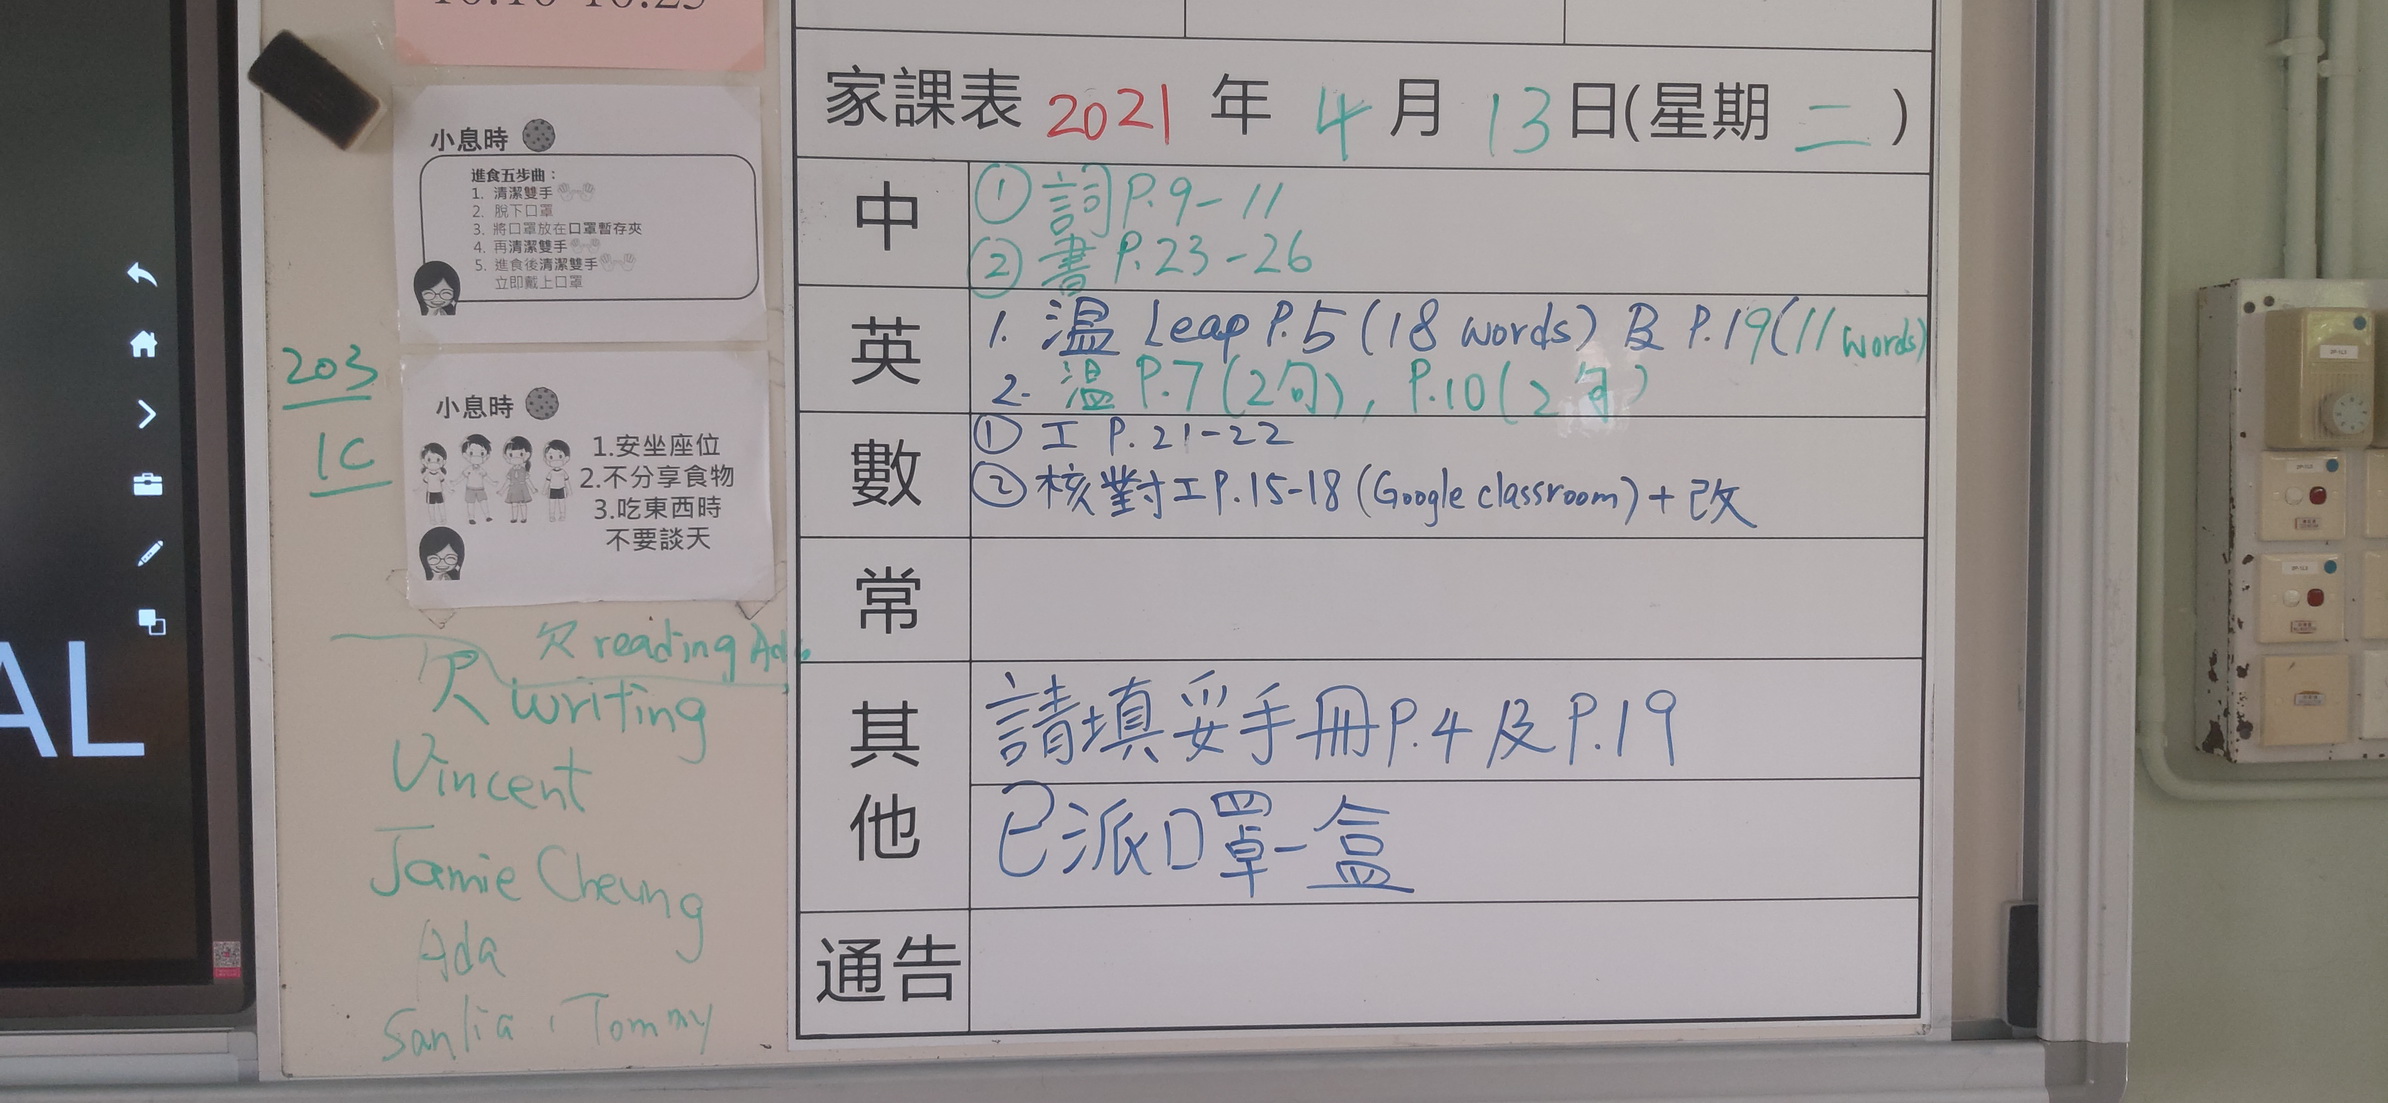 10:10-10:25
小息時
進食五步曲：
1. 清潔雙手
2. 脫下口罩
3. 將口罩放在口罩暫存夾
4. 再清潔雙手
5. 進食後清潔雙手
立即戴上口罩
小息時
1.安坐座位
2.不分享食物
3.吃東西時
不要談天
203
1C
欠 reading Ada
欠 writing
Vincent
Jamie Cheung
Ada
Sanlia, Tommy
AL
家課表 2021 年 4 月 13 日(星期 二 )
中
① 詞 P.9-11
② 書 P.23-26
英
1. 溫 Leap P.5 (18 words) 及 P.19 (11 words)
2. 溫 P.7 (2句), P.10 (2句)
數
① 工 P.21-22
② 核對工P.15-18 (Google classroom) + 改
常
其他
請填妥手冊P.4及P.19
已派口罩一盒
通告